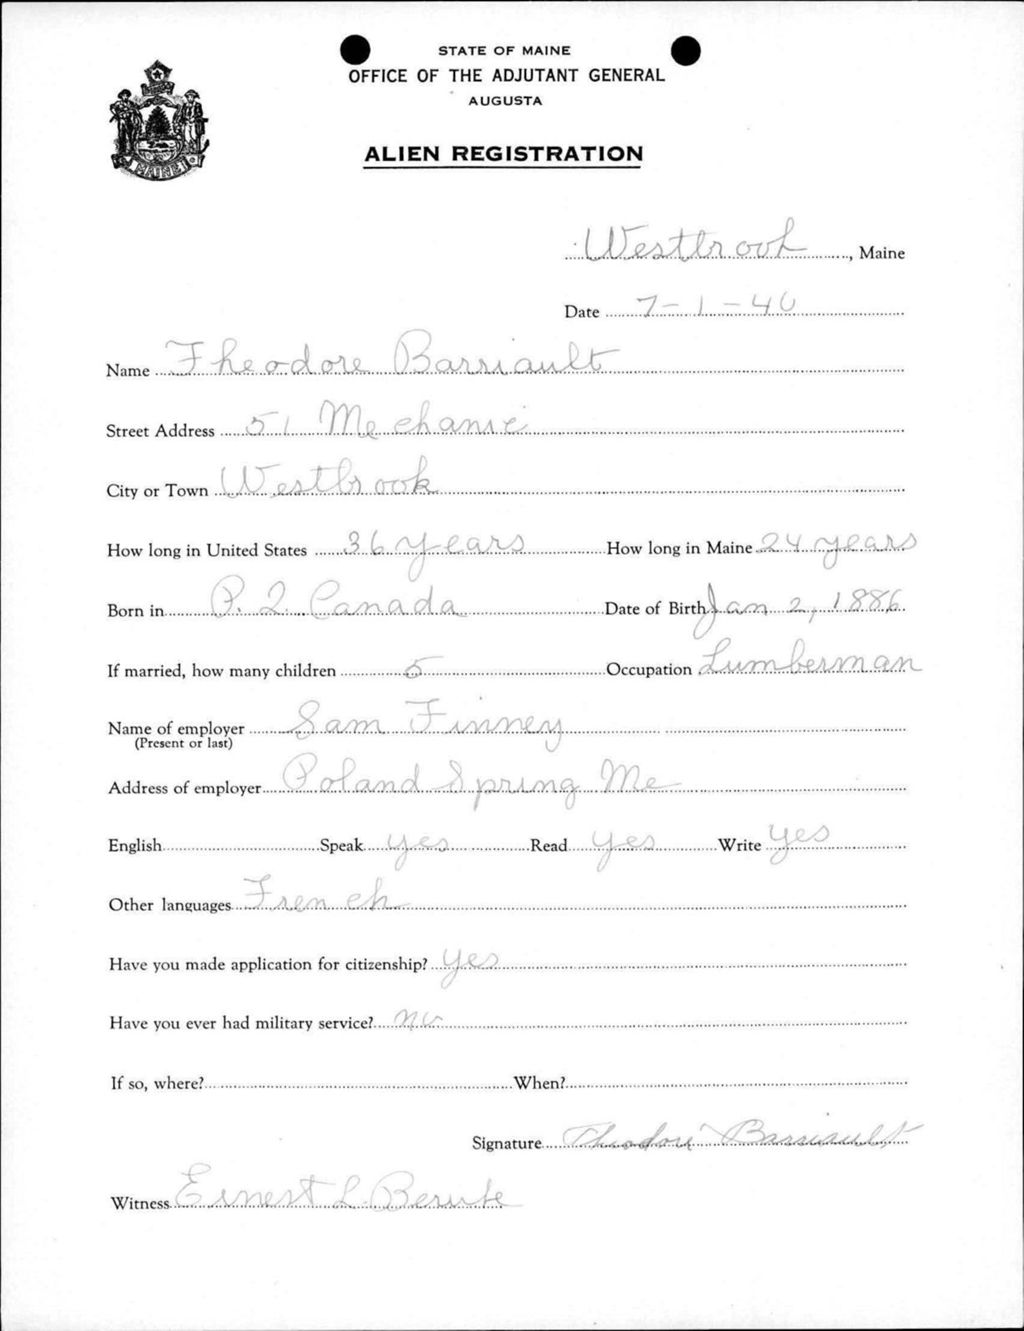 STATE OF MAINE
OFFICE OF THE ADJUTANT GENERAL
AUGUSTA
ALIEN REGISTRATION
MAINE
Westbrook, Maine
Date 7-1-40
Name Theodore Barriault
Street Address 51 Mechanic
City or Town Westbrook
How long in United States 36 years How long in Maine 24 years
Born in P. Q. Canada Date of Birth Jan 2, 1886
If married, how many children 5 Occupation Lumberman
Name of employer Sam Finney
(Present or last)
Address of employer Poland Spring Me
English Speak yes Read yes Write yes
Other languages French
Have you made application for citizenship? yes
Have you ever had military service? no
If so, where? When?
Signature Theodore Barriault
Witness Ernest L.